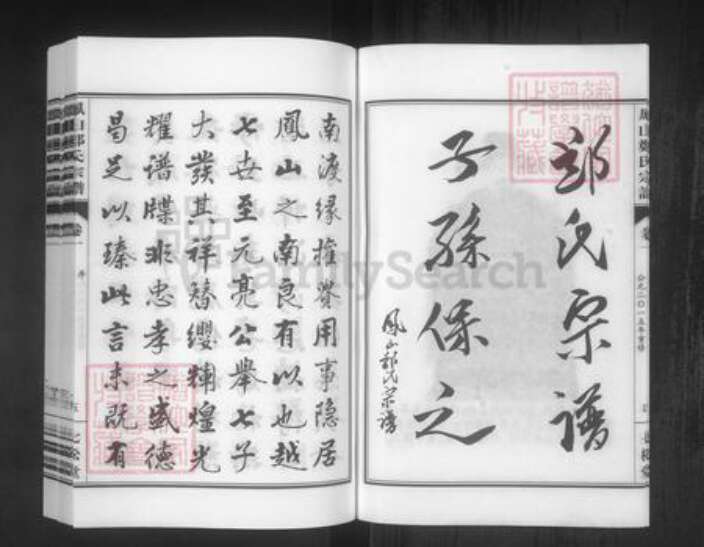 郑氏宗谱
子孫保之
鳳山郑氏宗譜
公元二〇一五年重修
南渡缘權贵用事隐居
鳳山之南良有以也越
七世至元亮公舉七子
大發其祥簪缨辅煌光
耀谱牒非忠孝之盛德
曷足以臻此言未既有
鳳山鄭氏宗譜
卷一
序
FamilySearch